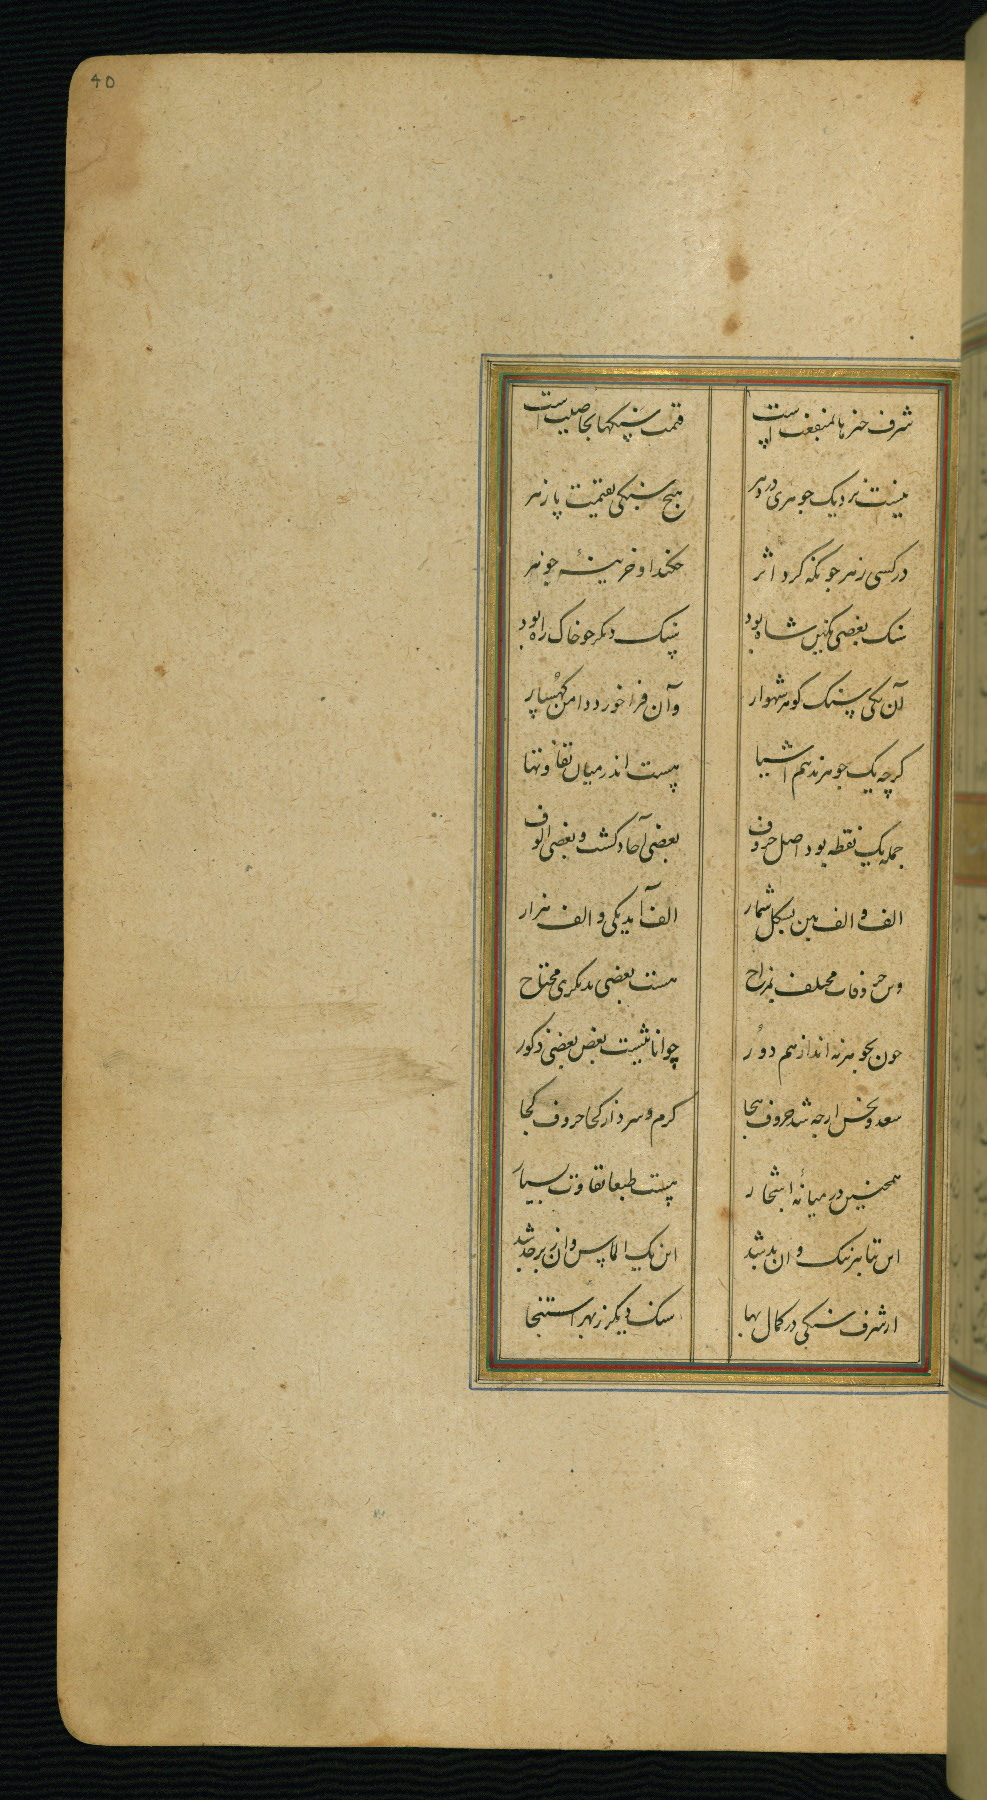 40
شرف چیزها بمنفعت است
قیمت سنگها بخاصیت است
نیست نزدیک جوهری در دهر
هیچ سنگی بقیمت پازهر
در کسی زهر چونکه کرد اثر
چکند او خزینهٔ جوهر
سنک بعضی نکین شاه بود
سنک دیکر چو خاک راه بود
آن یکی سنک کوهر شهوار
وآن فرا خورد دامن کهسار
کرچه یک جوهرند هم اشیا
هست اندر میان تفاوتها
جمله یک نقطه بود اصل حروف
بعضی آحاد کشت و بعضی الوف
الف و الف بین بشکل شمار
الف آمد یکی و الف هزار
وین حروفات مختلف بمزاج
هست بعضی بدیکری محتاج
چون بجوهر نه انداز هم دور
چو اناثیست بعض بعضی ذکور
سعد و نحس ار چه شد حروف هجا
کرم و سرد از کجا حروف کجا
همچنین در میانهٔ اشجار
هست طبعا تفاوت بسیار
این یک الماس وان زبرجد شد
از شرف سنکی در کمال بها
سنک دیکر ز بهر استنجا